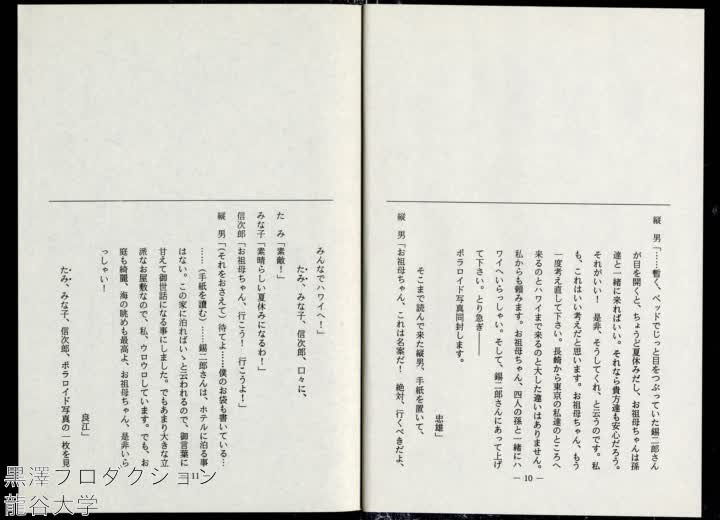 縦　男「……暫く、ベッドでじっと目をつぶっていた錫二郎さん
が目を開くと、ちょうど夏休みだし、お祖母ちゃんは孫
達と一緒に来ればいい。それなら貴方達も安心だろう。
それがいい！　是非、そうしてくれ、と云うのです。私
も、これはいい考えだと思います。お祖母ちゃん、もう
一度考え直して下さい。長崎から東京の私達のところへ
来るのとハワイまで来るのと大した違いはありません。
私からも頼みます。お祖母ちゃん、四人の孫と一緒にハ
ワイへいらっしゃい。そして、錫二郎さんにあって上げ
て下さい。とり急ぎ――
ポラロイド写真同封します。
忠雄」
そこまで読んで来た縦男、手紙を置いて、
縦　男「お祖母ちゃん、これは名案だ！　絶対、行くべきだよ、
― 10 ―
みんなでハワイへ！」
たみ、みな子、信次郎、口々に、
た　み「素敵！」
みな子「素晴らしい夏休みになるわ！」
信次郎「お祖母ちゃん、行こう！　行こうよ！」
縦　男「（それをおさえて）待てよ……僕のお袋も書いている…
……（手紙を読む）……錫二郎さんは、ホテルに泊る事
はない。この家に泊ればいゝと云われるので、御言葉に
甘えて御世話になる事にしました。でもあまり大きな立
派なお屋敷なので、私、ウロウロしています。でも、お
庭も綺麗、海の眺めも最高よ、お祖母ちゃん、是非いら
っしゃい！
良江」
たみ、みな子、信次郎、ポラロイド写真の一枚を見
― 11 ―
黒澤プロダクション
龍谷大学